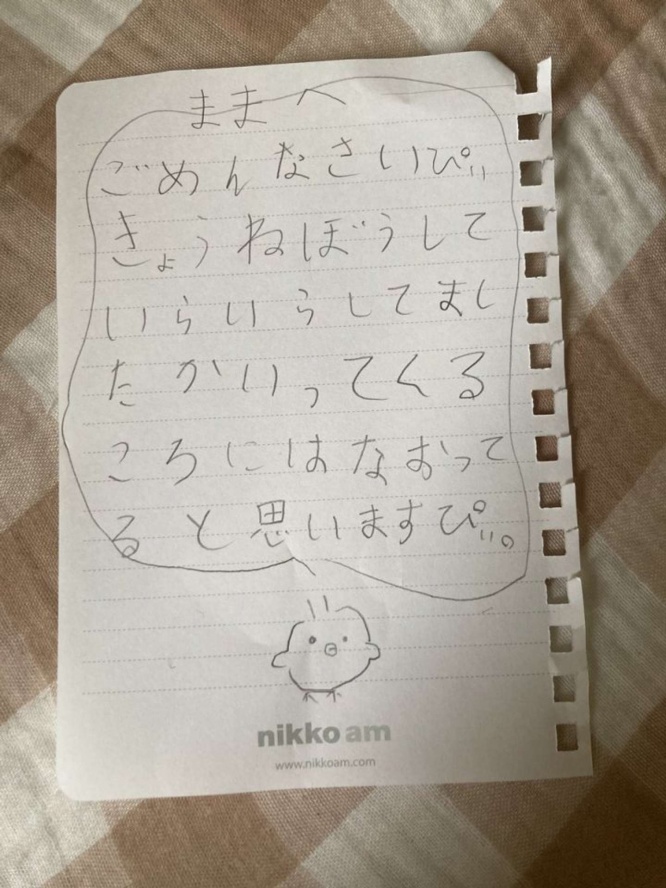 ままへ
ごめんなさいぴぃ
きょうねぼうして
いらいらしてまし
た かいってくる
ころにはなおって
ると思いますぴぃ。
nikko am
www.nikkoam.com